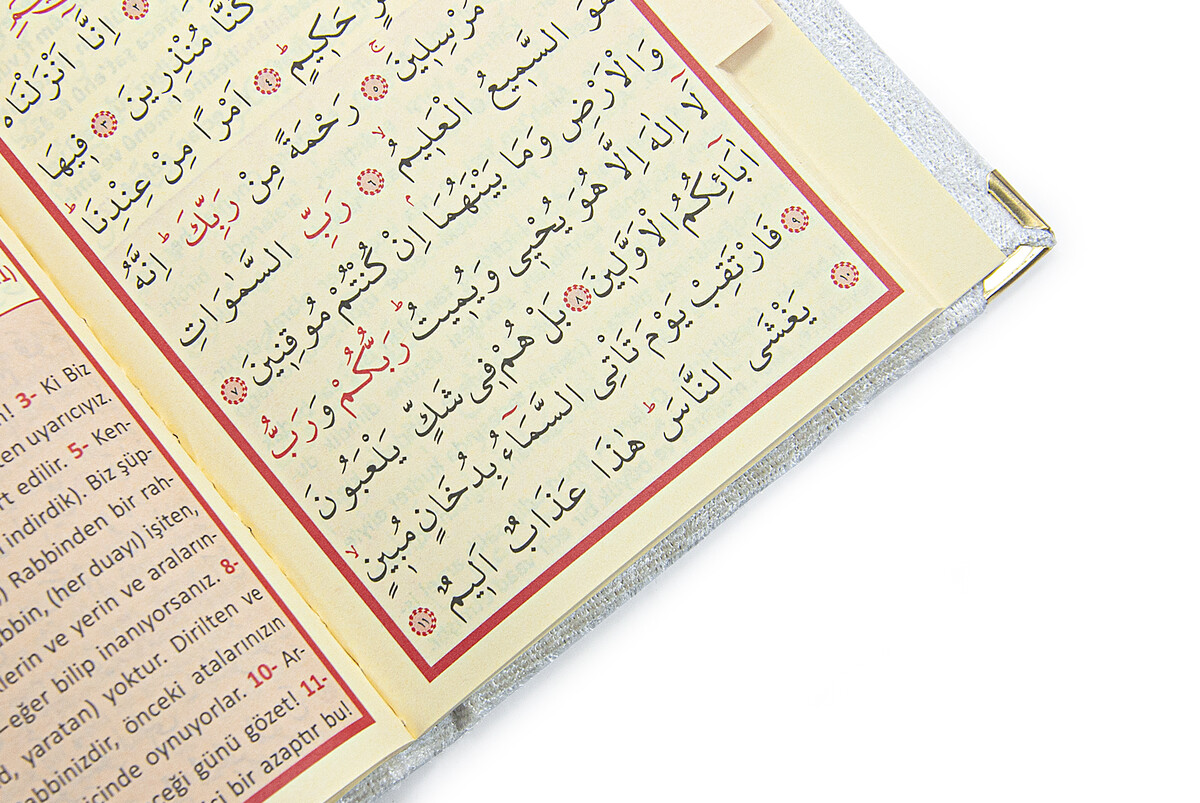 ٢ اِنَّٓا اَنْزَلْنَاهُ
كُنَّا مُنْذِرِينَ ٣ فِيهَا
حَكِيمٍ ٤ اَمْرًا مِنْ عِنْدِنَا
مُرْسِلِينَ ٥ رَحْمَةً مِنْ رَبِّكَ اِنَّهُ
هُوَ السَّمِيعُ الْعَلِيمُ ٦ رَبِّ السَّمٰوَاتِ
وَالْاَرْضِ وَمَا بَيْنَهُمَا اِنْ كُنْتُمْ مُوقِنِينَ ٧
لَٓا اِلٰهَ اِلَّا هُوَ يُحْيٖى وَيُمِيتُ رَبُّكُمْ وَرَبُّ
اٰبَٓائِكُمُ الْاَوَّلِينَ ٨ بَلْ هُمْ فِى شَكٍّ يَلْعَبُونَ
٩ فَارْتَقِبْ يَوْمَ تَاْتِى السَّمَٓاءُ بِدُخَانٍ مُبِينٍ
١٠ يَغْشَى النَّاسَ هٰذَا عَذَابٌ اَلِيمٌ ١١
3- Ki Biz
uyarıcıyız.
edilir. 5- Ken-
indirdik). Biz şüp-
Rabbinden bir rah-
(her duayı) işiten,
ve yerin ve araların-
-eğer bilip inanıyorsanız. 8-
yaratan) yoktur. Dirilten ve
önceki atalarınızın
oynuyorlar. 10- Ar-
günü gözet! 11-
bir azaptır bu!